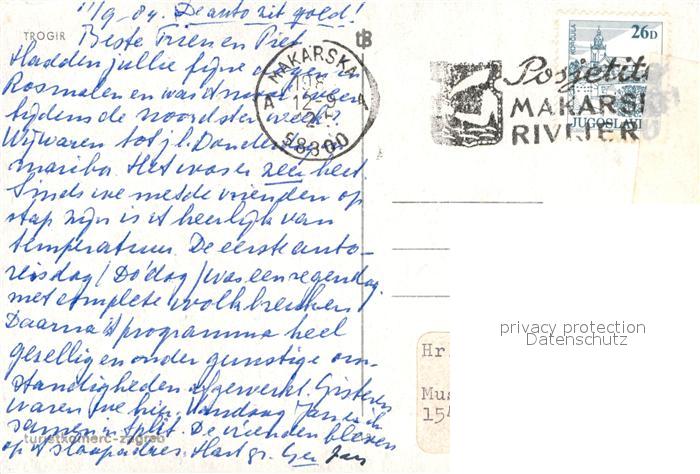 11/9-84. De auto zit goed!
TROGIR
Beste Trien en Piet
Hadden jullie fijne dagen in
Rosmalen en was 't mooi weer
tijdens de noordster week?
Wij waren tot j.l. Donderdag in
maribor. Het was er zeer heet.
Sinds we met de vrienden op
stap zijn is 't heerlijk van
temperatuur. De eerste auto-
reisdag (Do'dag) was een regendag
met complete wolkbreuken
Daarna is 't programma heel
gezellig en onder gunstige om-
standigheden afgewerkt. Gisteren
waren we hier. Vandaag Jan en ik
samen in Split. De vrienden bleven
op 't slaapadres. Hart. gr. Ger Jan
turistkomerc-zagreb
tB
MAKARSKA
12-9
58300
Posjetite
MAKARS
RIVIJER
26D
KORČULA
JUGOSLAVI
privacy protection
Datenschutz
Hr
Mu
15